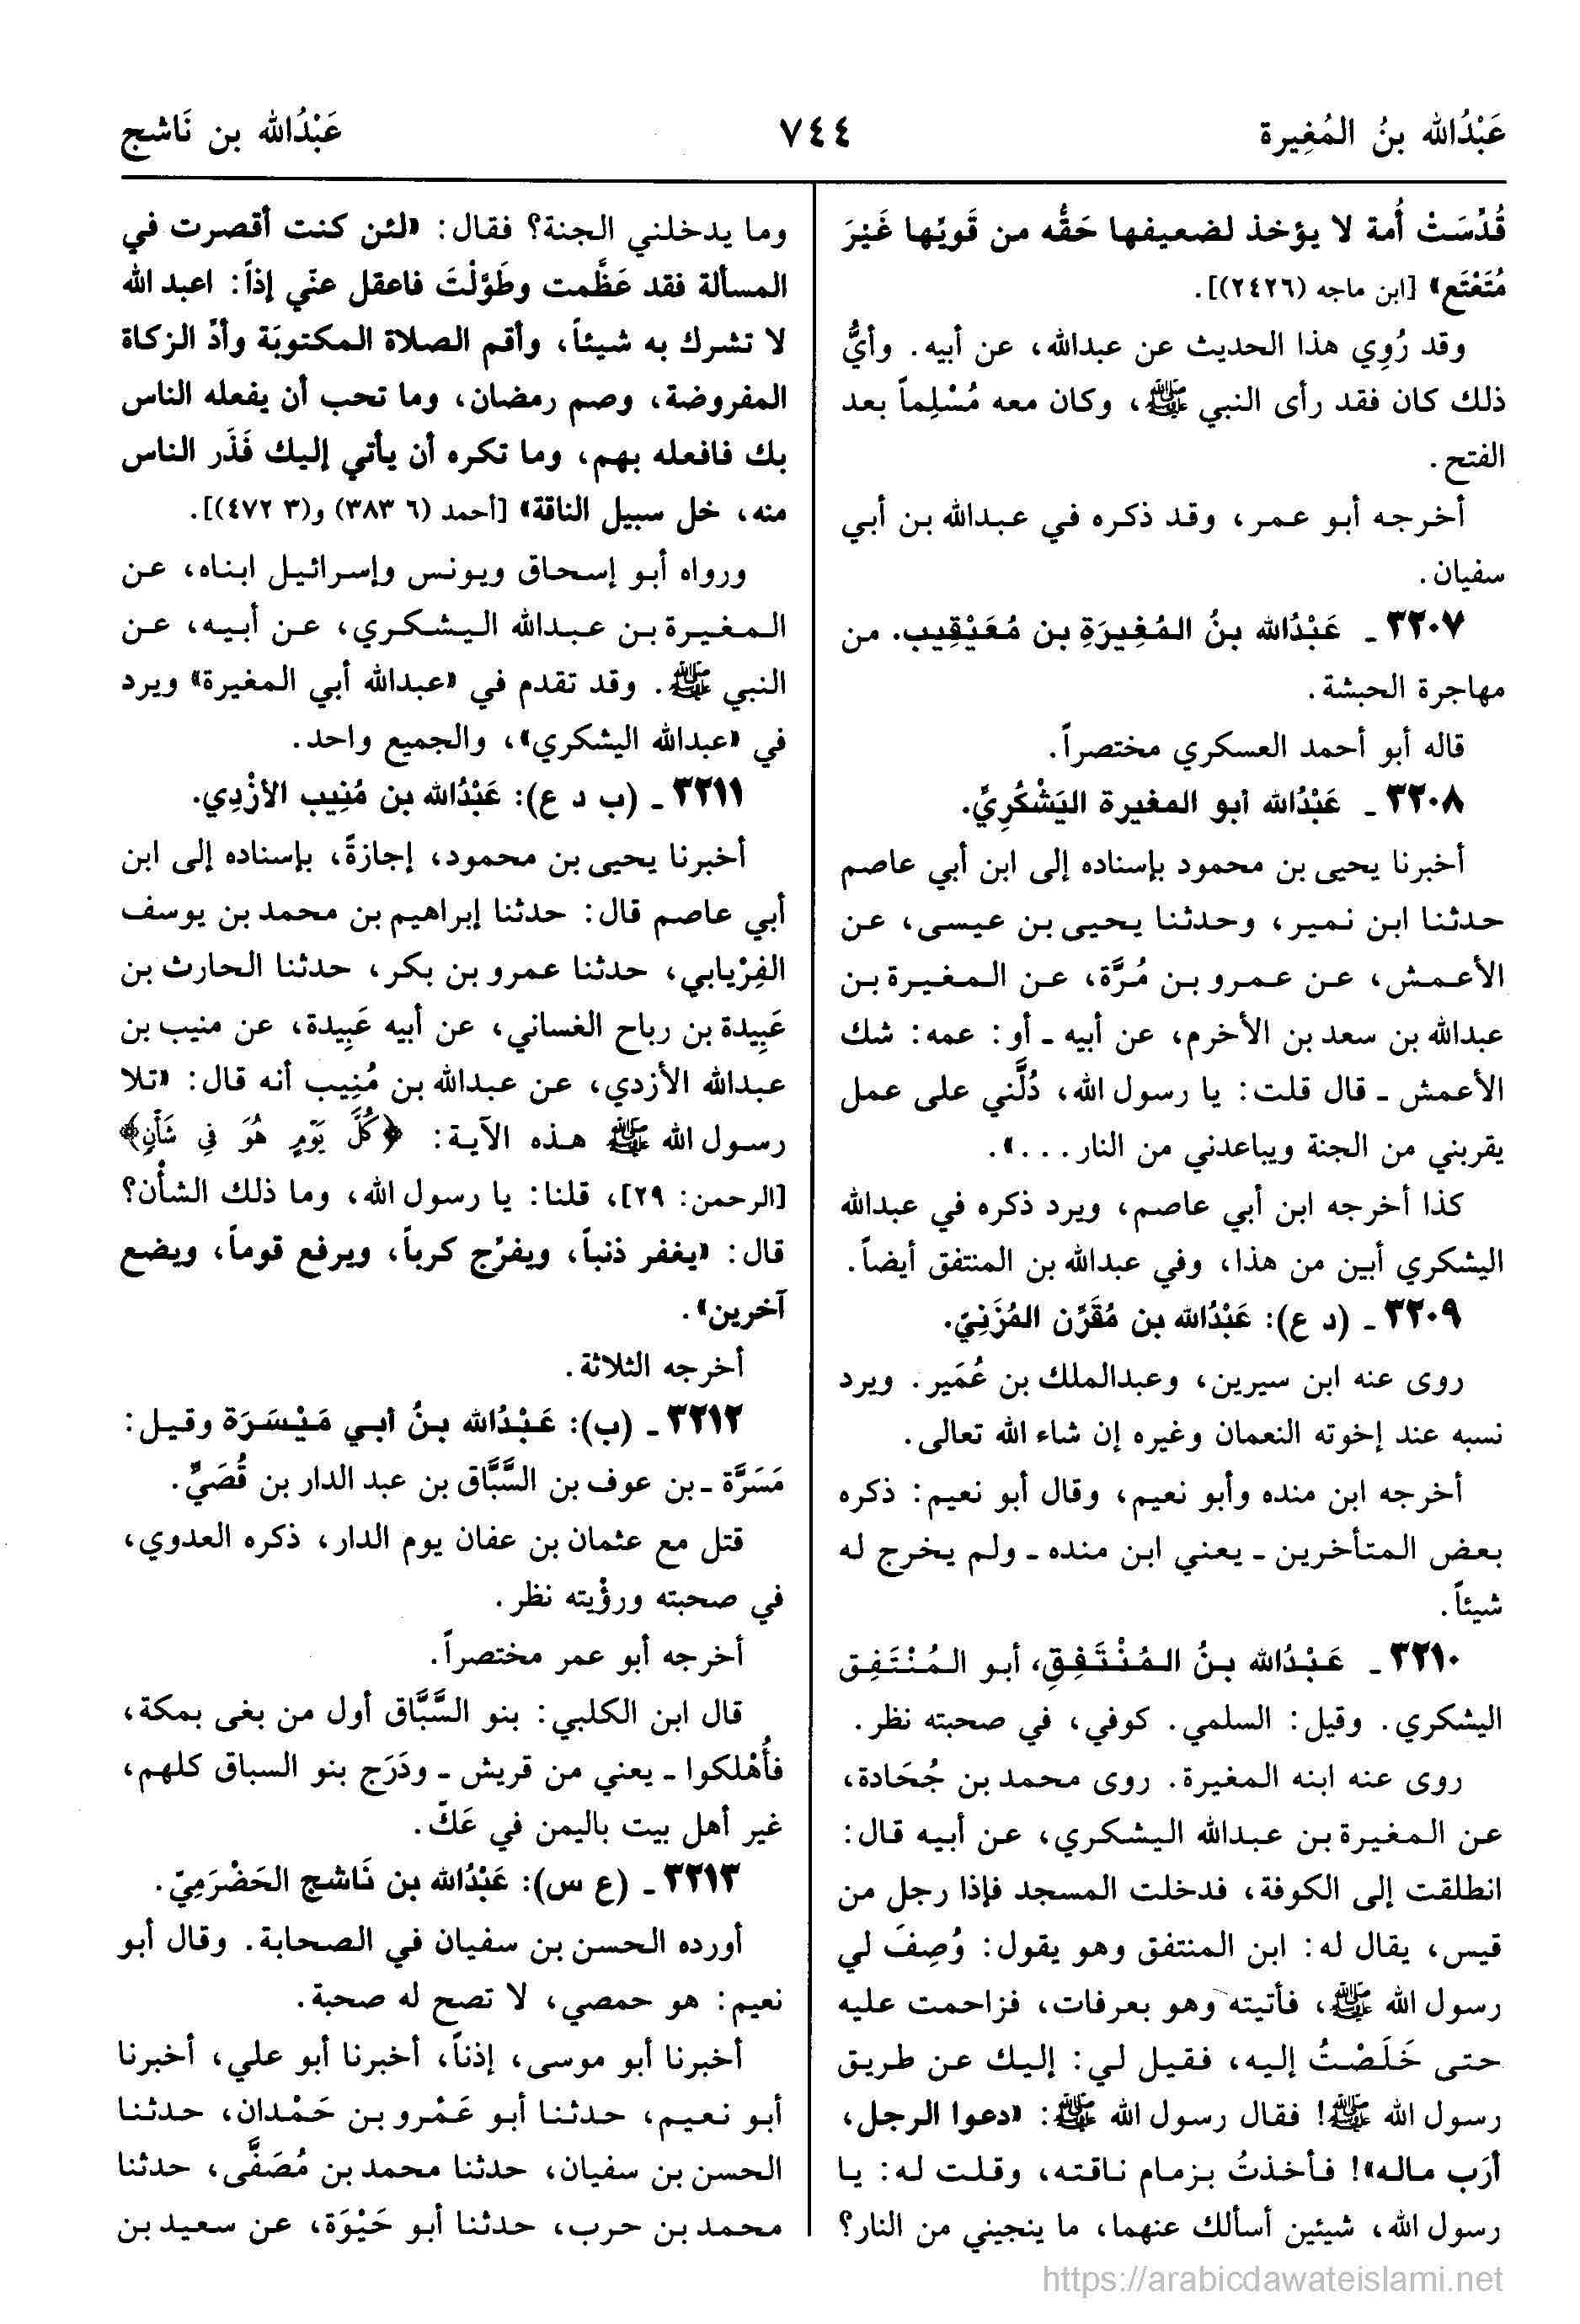 عَبْدُالله بنُ المُغِيرة
٧٤٤
عَبْدُالله بن نَاشج
قُدِّسَتْ أُمة لا يؤخذ لضعيفها حَقُّه من قَويِّها غَيْرَ
مُتَعْتَع» [ابن ماجه (٢٤٢٦)].
وقد رُوِي هذا الحديث عن عبدالله، عن أبيه. وأيُّ
ذلك كان فقد رأى النبي ﷺ، وكان معه مُسْلِماً بعد
الفتح.
أخرجه أبو عمر، وقد ذكره في عبدالله بن أبي
سفيان.
٣٢٠٧ ـ عَبْدُالله بنُ المُغِيرَةِ بن مُعَيْقِيب. من
مهاجرة الحبشة.
قاله أبو أحمد العسكري مختصراً.
٣٢٠٨ ـ عَبْدُالله أبو المغيرة اليَشْكُرِيِّ.
أخبرنا يحيى بن محمود بإسناده إلى ابن أبي عاصم
حدثنا ابن نمير، وحدثنا يحيى بن عيسى، عن
الأعمش، عن عمرو بن مُرَّة، عن المغيرة بن
عبدالله بن سعد بن الأخرم، عن أبيه ـ أو: عمه: شك
الأعمش ـ قال قلت: يا رسول الله، دُلَّني على عمل
يقربني من الجنة ويباعدني من النار...».
كذا أخرجه ابن أبي عاصم، ويرد ذكره في عبدالله
اليشكري أبين من هذا، وفي عبدالله بن المنتفق أيضاً.
٣٢٠٩ ـ (د ع): عَبْدُالله بن مُقَرِّن المُزَنِيّ.
روى عنه ابن سيرين، وعبدالملك بن عُمَير. ويرد
نسبه عند إخوته النعمان وغيره إن شاء الله تعالى.
أخرجه ابن منده وأبو نعيم، وقال أبو نعيم: ذكره
بعض المتأخرين ـ يعني ابن منده ـ ولم يخرج له
شيئاً.
٣٢١٠ ـ عَبْدُالله بنُ المُنْتَفِقِ، أبو المُنْتَفِق
اليشكري. وقيل: السلمي. كوفي، في صحبته نظر.
روى عنه ابنه المغيرة. روى محمد بن جُحَادة،
عن المغيرة بن عبدالله اليشكري، عن أبيه قال:
انطلقت إلى الكوفة، فدخلت المسجد فإذا رجل من
قيس، يقال له: ابن المنتفق وهو يقول: وُصِفَ لي
رسول الله ﷺ، فأتيته وهو بعرفات، فزاحمت عليه
حتى خَلَصْتُ إليه، فقيل لي: إليك عن طريق
رسول الله ﷺ! فقال رسول الله ﷺ: «دعوا الرجل،
أرَب ماله»! فأخذتُ بزمام ناقته، وقلت له: يا
رسول الله، شيئين أسألك عنهما، ما ينجيني من النار؟
وما يدخلني الجنة؟ فقال: «لئن كنت أقصرت في
المسألة فقد عَظَّمت وطَوَّلْتَ فاعقل عنّي إذاً: اعبد الله
لا تشرك به شيئاً، وأقم الصلاة المكتوبَة وأدِّ الزكاة
المفروضة، وصم رمضان، وما تحب أن يفعله الناس
بك فافعله بهم، وما تكره أن يأتي إليك فَذَر الناس
منه، خل سبيل الناقة» [أحمد (٦ ٣٨٣) و(٣ ٤٧٢)].
ورواه أبو إسحاق ويونس وإسرائيل ابناه، عن
المغيرة بن عبدالله اليشكري، عن أبيه، عن
النبي ﷺ. وقد تقدم في «عبدالله أبي المغيرة» ويرد
في «عبدالله اليشكري»، والجميع واحد.
٣٢١١ ـ (ب د ع): عَبْدُالله بن مُنِيب الأزْدِي.
أخبرنا يحيى بن محمود، إجازةً، بإسناده إلى ابن
أبي عاصم قال: حدثنا إبراهيم بن محمد بن يوسف
الفِرْيابي، حدثنا عمرو بن بكر، حدثنا الحارث بن
عَبِيدة بن رباح الغساني، عن أبيه عَبِيدة، عن منيب بن
عبدالله الأزدي، عن عبدالله بن مُنِيب أنه قال: «تلا
رسول الله ﷺ هذه الآية: ﴿كُلَّ يَوْمٍ هُوَ فِي شَأْنٍ﴾
[الرحمن: ٢٩]، قلنا: يا رسول الله، وما ذلك الشأن؟
قال: «يغفر ذنباً، ويفرِّج كرباً، ويرفع قوماً، ويضع
آخرين».
أخرجه الثلاثة.
٣٢١٢ ـ (ب): عَبْدُالله بنُ أبي مَيْسَرَة وقيل:
مَسَرَّة ـ بن عوف بن السَّبَّاق بن عبد الدار بن قُصَيِّ.
قتل مع عثمان بن عفان يوم الدار، ذكره العدوي،
في صحبته ورؤْيته نظر.
أخرجه أبو عمر مختصراً.
قال ابن الكلبي: بنو السَّبَّاق أول من بغى بمكة،
فأُهْلكوا ـ يعني من قريش ـ ودَرَج بنو السباق كلهم،
غير أهل بيت باليمن في عَكّ.
٣٢١٣ ـ (ع س): عَبْدُالله بن نَاشج الحَضْرَمِيّ.
أورده الحسن بن سفيان في الصحابة. وقال أبو
نعيم: هو حمصي، لا تصح له صحبة.
أخبرنا أبو موسى، إذناً، أخبرنا أبو علي، أخبرنا
أبو نعيم، حدثنا أبو عَمْرو بن حَمْدان، حدثنا
الحسن بن سفيان، حدثنا محمد بن مُصَفَّى، حدثنا
محمد بن حرب، حدثنا أبو حَيْوَة، عن سعيد بن
https://arabicdawateislami.net